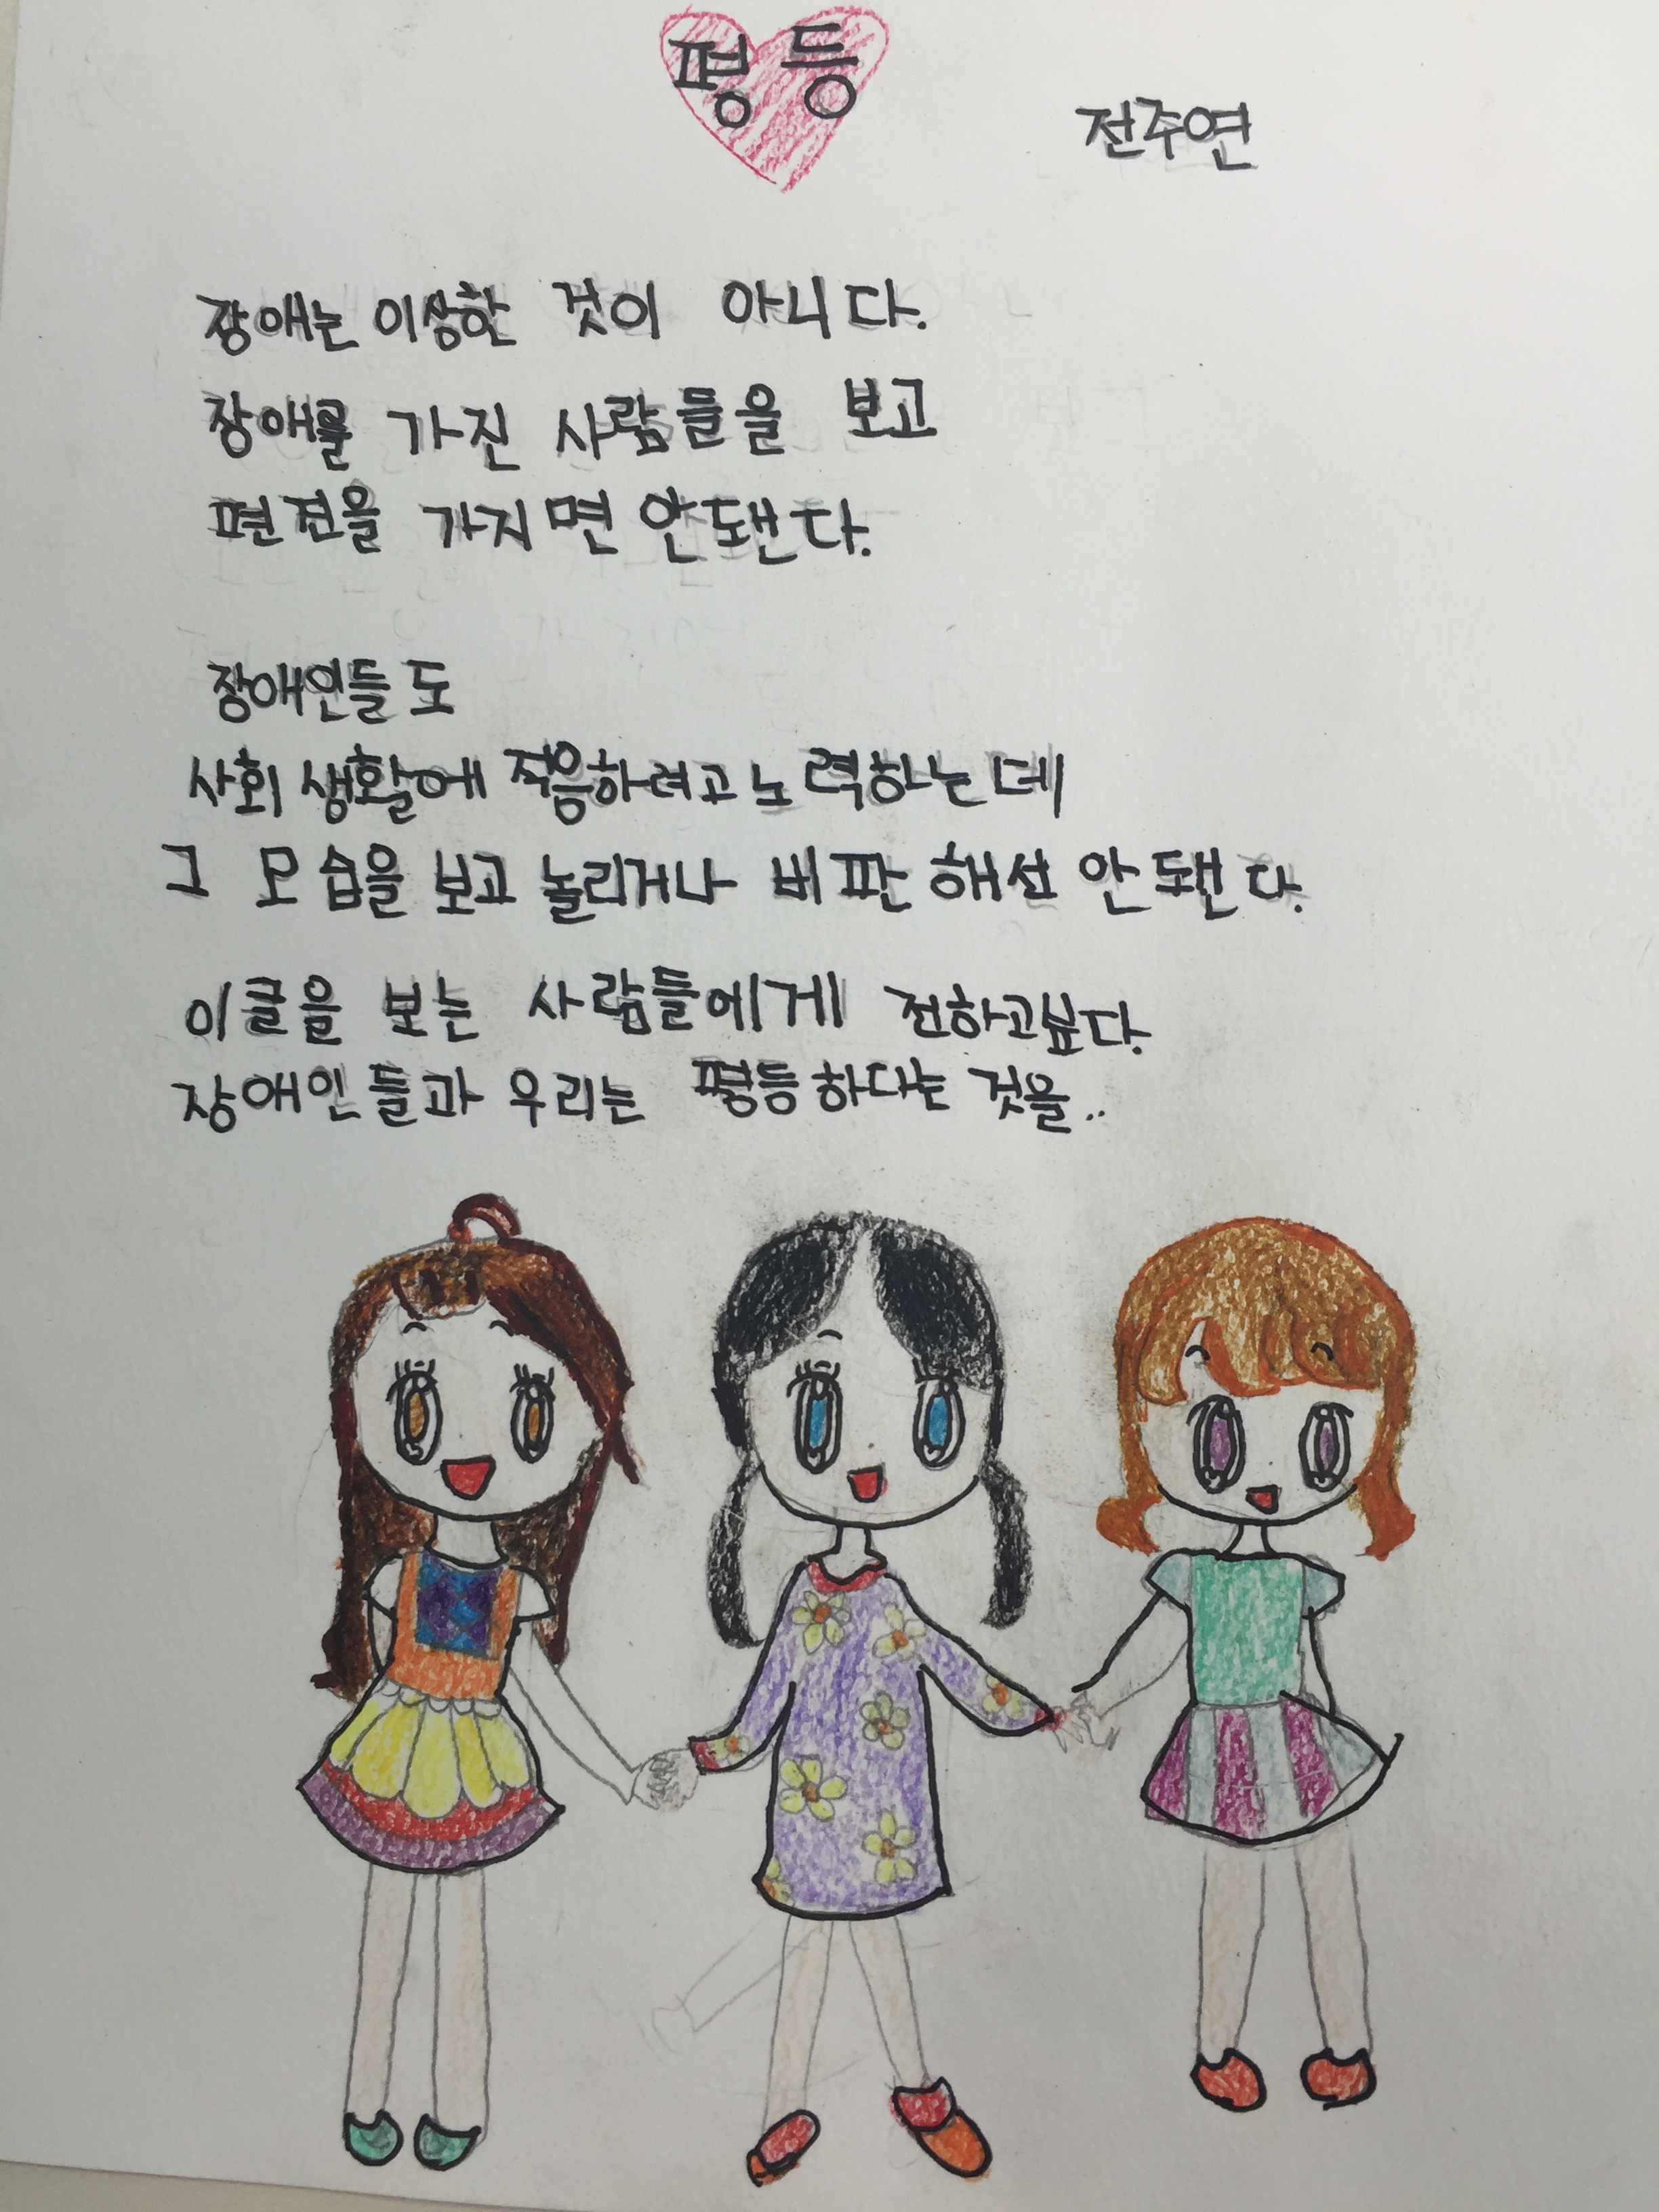 평등
전주연
장애는 이상한 것이 아니다.
장애를 가진 사람들을 보고
편견을 가지면 안됀다.
장애인들도
사회 생활에 적응하려고 노력하는데
그 모습을 보고 놀리거나 비판해선 안됀다.
이글을 보는 사람들에게 전하고싶다.
장애인들과 우리는 평등하다는 것을..